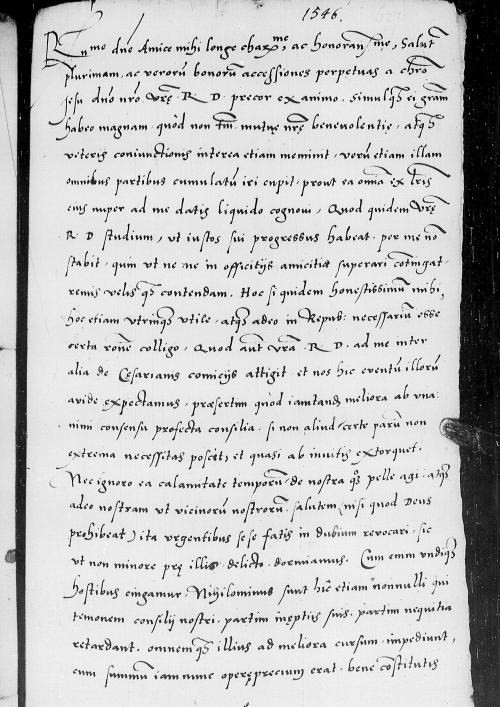 1546.
Rme dne Amice mihi longe charme, ac honoranme, Salut
plurimam, ac veroru bonoru accessiones perpetuas a chro
Jesu dno nro vrę R D precor ex animo. Simulqz ei gram
habeo magnam. quòd non tm mutuę nrę benevolentię, atqz
veteris coniunctionis interea etiam meminit, veru etiam illam
omnibus partibus cumulatu iri cupit, prout ea omia ex lris
eius nuper ad me datis liquido cognovi, Quod quidem vrę
R D studium, ut iustos sui progressus habeat. per me no
stabit. quin ut ne me in officijs amicitia superari contingat.
remis velisqz contendam. Hoc siquidem honestissimu mihi,
hoc etiam utrinqz utile, atqz adeo in Repub: necessariu esse
certa rone colligo, Quod aut vra R D. ad me inter
alia de Cęsarianis comicijs attigit et nos hic eventu illoru
avide expectamus, praesertim quòd iamtandem meliora ab una
nimi consensu profecta consilia, si non aliud, certe paru non
extrema necessitas poscet, et quasi ab invitis extorquet.
Nec ignoro ea calamitate temporu de nostra qz pelle agi. atqz
adeo nostram ut vicinoru nostroru. salutem (nisi quod Deus
prohibeat) ita urgentibus sese fatis in dubium revocari, sic
ut non minore prę illis delicto dormiamus. Cum enim undiqz
hostibus cingamur, Nihilominus sunt hic etiam nonnulli qui
temonem consilij nostri, partim ineptijs suis, partim nequitia
retardant, omnemqz illius ad meliora cursum impediunt,
cum summu iam nunc operęprecium erat, bene constitutis